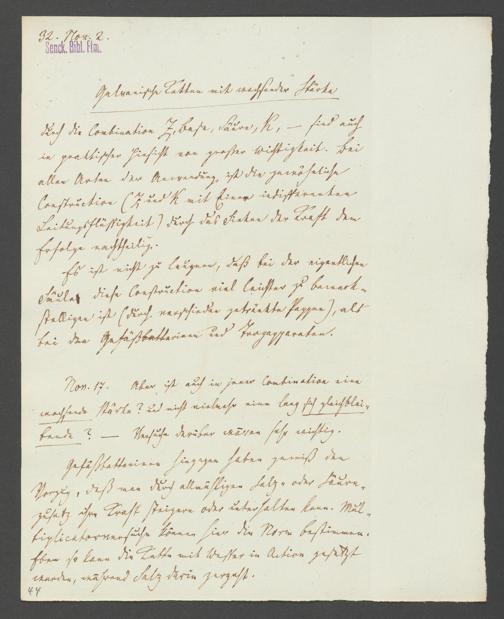 32. Nov. 2.
Senck. Bibl. Ffm.
Galvanische Ketten mit wachsender Stärke
durch die Combination Z, Base, Säure, K, — sind auch
in praktischer Hinsicht von großer Wichtigkeit. Bei
allen Arten der Anwendung ist die gewöhnliche
Construction (Z und K mit Einer indifferenten
Leitungsflüssigkeit) durch das Sinken der Kraft dem
Erfolge nachtheilig.
Es ist nicht zu läugnen, daß bei der eigentlichen
Säule diese Construction viel leichter zu bewerk-
stelligen ist (durch verschieden getränkte Pappen), als
bei den Gefäßbatterien und Trogapparaten.
Nov. 17. Aber ist auch in jener Combination eine
wachsende Stärke? und nicht vielmehr eine lang sich gleichblei-
bende? — Versuche darüber wären sehr wichtig.
Gefäßbatterien hingegen haben gewiß den
Vorzug, daß man durch allmähligen Salz- oder Säure-
zusatz ihre Kraft steigern oder unterhalten kann. Mul-
tiplicatorversuche können hier die Norm bestimmen.
Eben so kann die Kette mit Wasser in Action gesetzt
werden, während Salz darin zergeht.
44